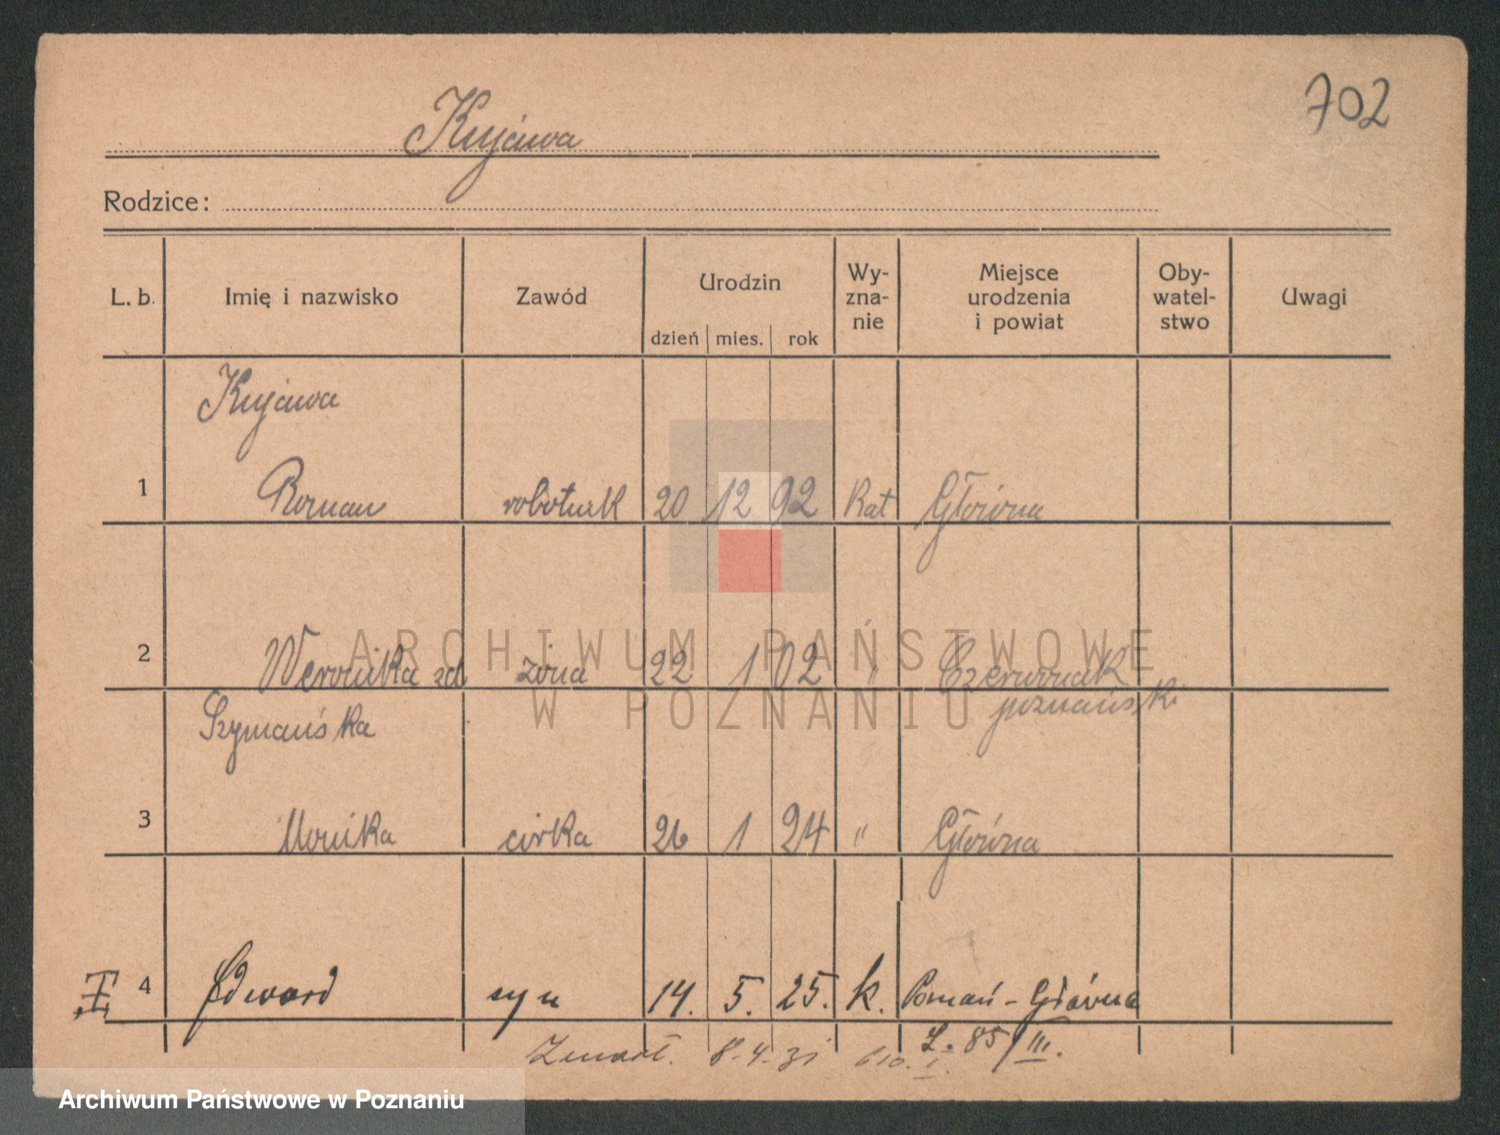 702
Kujawa
Rodzice:
L. b. Imię i nazwisko Zawód Urodzin dzień mies. rok Wy-zna-nie Miejsce urodzenia i powiat Oby-watel-stwo Uwagi
Kujawa
1 Roman robotnik 20 12 92 Kat Główna
2 Weronika zd żona 22 1 02 " Czerwonak
Szymańska poznański
3 Monika córka 26 1 24 " Główna
4 Edward syn 14. 5. 25. k. Poznań - Główna
L. 85/III.
Zmarł. 8.4.31 610. I.
ARCHIWUM PAŃSTWOWE
W POZNANIU
Archiwum Państwowe w Poznaniu